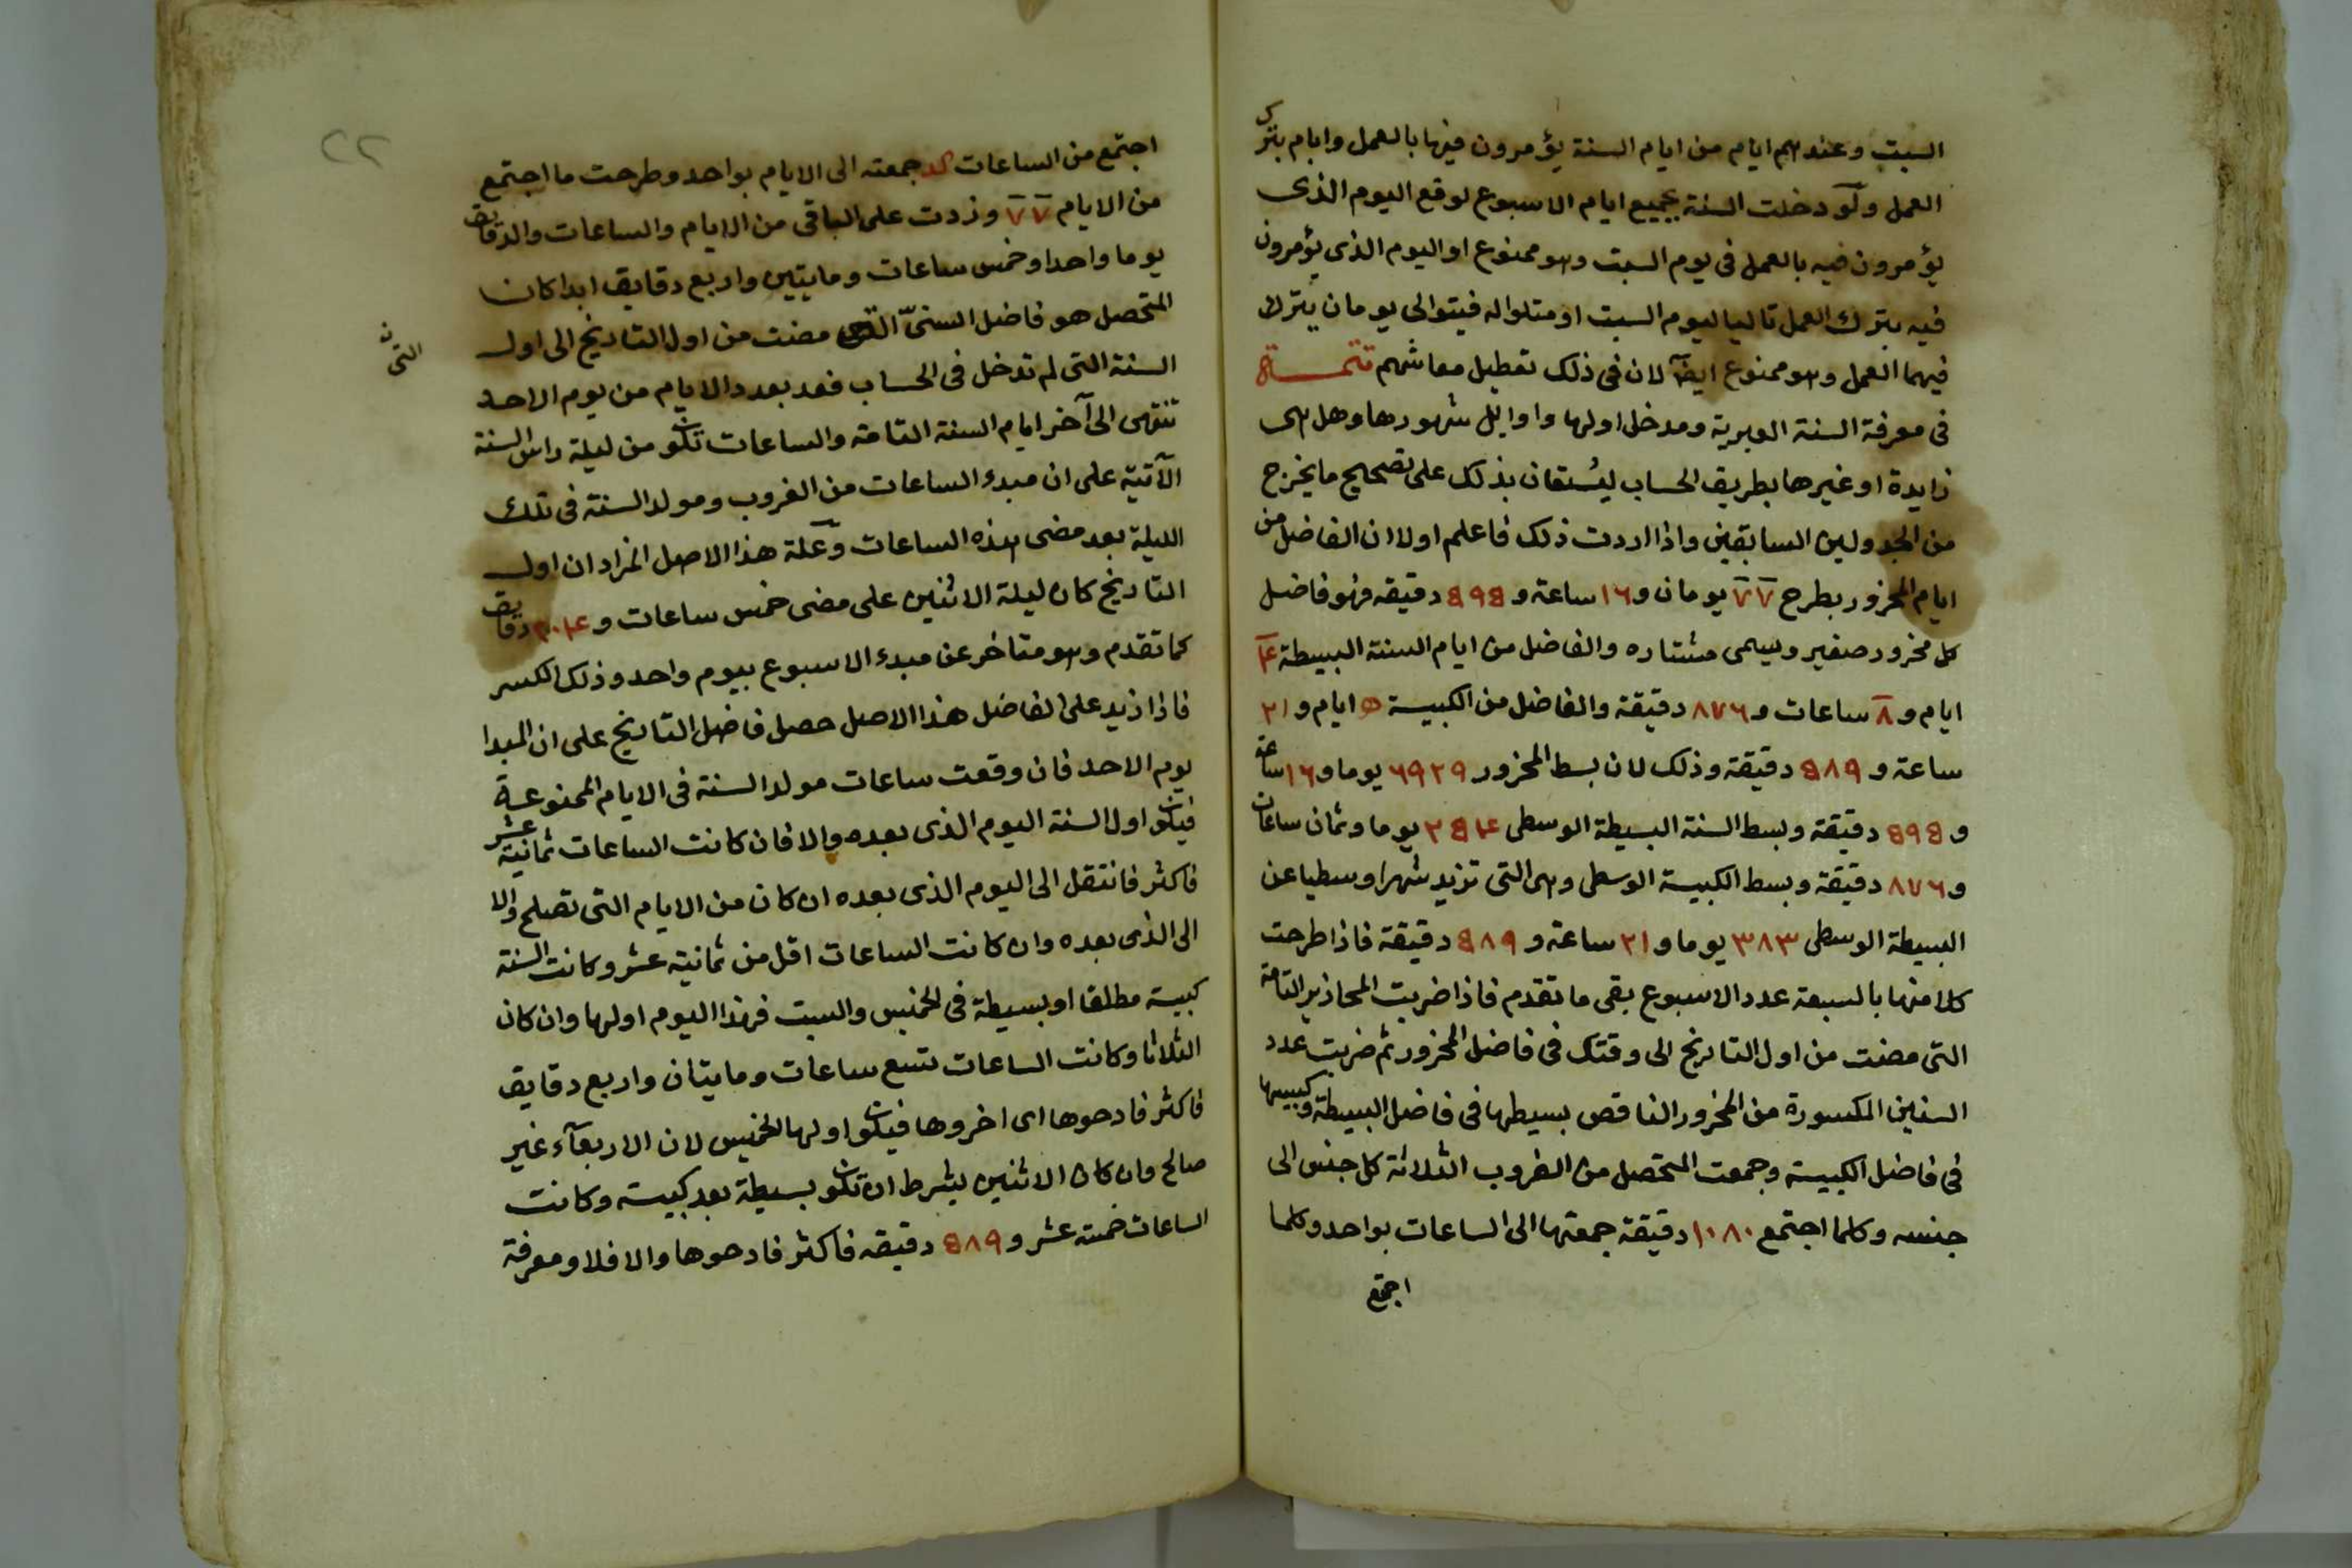 السبت وعندهم ايام من ايام السنة يؤمرون فيها بالعمل وايام بترك
العمل ولو دخلت السنة بجميع ايام الاسبوع لوقع اليوم الذى
يؤمرون فيه بالعمل فى يوم السبت وهو ممنوع او اليوم الذى يؤمرون
فيه بترك العمل تاليا ليوم السبت او متلوا له فيتوالى يومان يترك
فيهما العمل وهو ممنوع ايضا لان فى ذلك تعطيل معاشهم تتمــة
فى معرفة السنة العبرية ومدخل اولها واوايل شهورها وهل هى
زايدة او غيرها بطريق الحساب ليستعان بذلك على تصحيح ما يخرج
من الجدولين السابقين واذا اردت ذلك فاعلم اولا ان الفاضل من
ايام المخزور بطرح ٧٧ يومان و١٦ ساعة و ٥٩٥ دقيقه فهو فاضل
كل مخزور صغير ويسمى مشتاره والفاضل من ايام السنة البسيطة ۴
ايام و ٨ ساعات و ٨٧٦ دقيقة والفاضل من الكبيسة ه ايام و ٢١
ساعة و ٥٨٩ دقيقة وذلك لان بسط المخزور ٦٩٣٩ يوما و ١٦ ساعة
و ٥٩٥ دقيقة وبسط السنة البسيطة الوسطى ٣٥۴ يوما وثمان ساعات
و ٨٧٦ دقيقة وبسط الكبيسة الوسطى وهى التى تزيد شهرا وسطيا عن
البسيطة الوسطى ٣٨٣ يوما و ٢١ ساعة و ٥٨٩ دقيقة فاذا طرحت
كلا منها بالسبعة عدد الاسبوع بقى ما تقدم فاذا ضربت المحازير التامة
التى مضت من اول التاريخ الى وقتك فى فاضل المخزور ثم ضربت عدد
السنين المكسورة من المخزور الناقص بسيطها فى فاضل البسيطة وكبيسها
فى فاضل الكبيسة وجمعت المتحصل من الضروب الثلاثة كل جنس الى
جنسه وكلما اجتمع ١٠٨٠ دقيقة جمعتها الى الساعات بواحد وكلما
اجتمع
٢٢
اجتمع من الساعات كد جمعته الى الايام بواحد وطرحت ما اجتمع
من الايام ٧٧ وزدت على الباقى من الايام والساعات والدقايق
يوما واحدا وخمس ساعات ومايتين واربع دقايق ابدا كان
المتحصل هو فاضل السنى مضت من اول التاريخ الى اول
ن التى
السنة التى لم تدخل فى الحساب فعد بعدد الايام من يوم الاحد
تنتهى الى آخر ايام السنة التامة والساعات تكون من ليلة راس السنة
الآتية على ان مبدء الساعات من الغروب ومولد السنة فى تلك
الليلة بعد مضى هذه الساعات وعلة هذا الاصل المزاد ان اول
التاريخ كان ليلة الاثنين على مضى خمس ساعات و ٢٠۴ دقايق
كما تقدم وهو متاخر عن مبدء الاسبوع بيوم واحد وذلك الكسر
فاذا زيد على الفاضل هذا الاصل حصل فاضل التاريخ على ان المبدا
يوم الاحد فان وقعت ساعات مولد السنة فى الايام الممنوعـة
فيكون اول السنة اليوم الذى بعده والا فان كانت الساعات ثمانية عشر
فاكثر فانتقل الى اليوم الذى بعده ان كان من الايام التى تصلح والا
الى الذى بعده وان كانت الساعات اقل من ثمانية عشر وكانت السنة
كبيسة مطلقا او بسيطة فى الخميس والسبت فهذا اليوم اولها وان كان
الثلاثا وكانت الساعات تسع ساعات ومايتان واربع دقايق
فاكثر فادحوها اى اخروها فيكون اولها الخميس لان الاربعآء غير
صالح وان كان الاثنين بشرط ان تكون بسيطة بعد كبيسة وكانت
الساعات خمسة عشر و ٥٨٩ دقيقه فاكثر فادحوها والا فلا ومعرفة